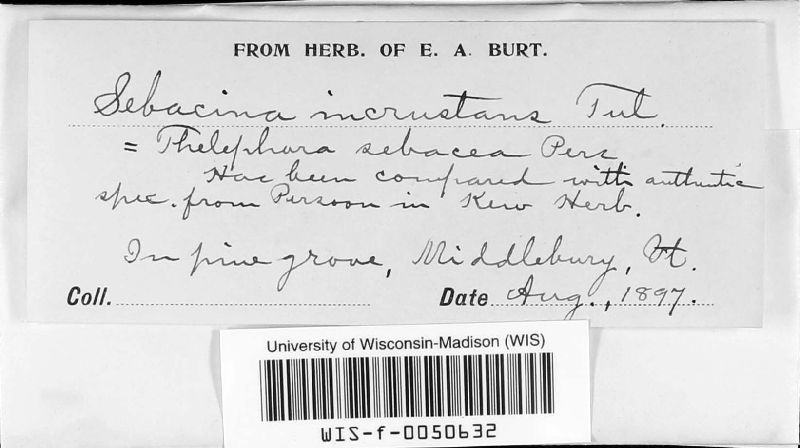 FROM HERB. OF E. A. BURT.
Sebacina incrustans Tul.
= Thelephora sebacea Pers
Has been compared with authentic
spec. from Persoon in Kew Herb.
In pine grove, Middlebury, Vt.
Coll. Date Aug., 1897.
University of Wisconsin-Madison (WIS)
WIS-f-0050632